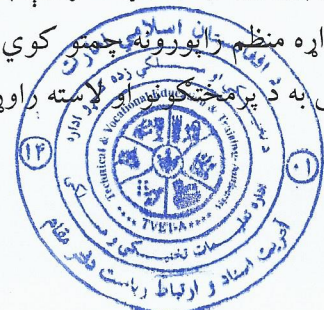 اړه منظم راپورونه چمتو کوي
به د پرمختګونو او لاسته راوړ
د افغانستان اسلامي امارت
د تخنیکي او مسلکي زده کړو اداره
Technical & Vocational Education & Training Authority
TVET-A
اداره تعلیمات تخنیکی و مسلکی
آمریت اسناد و ارتباط ریاست دفتر مقام
۱۴
۰۱